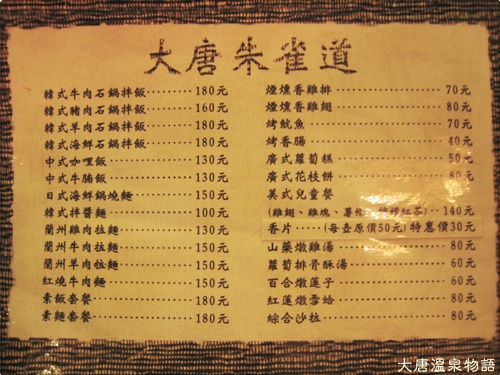 大唐朱雀道
韓式牛肉石鍋拌飯 180元
韓式豬肉石鍋拌飯 160元
韓式羊肉石鍋拌飯 180元
韓式海鮮石鍋拌飯 180元
中式咖哩飯 130元
中式牛腩飯 130元
日式海鮮鍋燒麵 150元
韓式拌醬麵 100元
蘭州雞肉拉麵 130元
蘭州牛肉拉麵 150元
蘭州羊肉拉麵 150元
紅燒牛肉麵 150元
素飯套餐 180元
素麵套餐 180元
煙燻香雞排 70元
煙燻香雞翅 80元
烤魷魚 70元
烤香腸 40元
廣式蘿蔔糕 50元
廣式花枝餅 80元
美式兒童餐
(雞翅、雞塊、薯條 紅茶) 140元
香片 (每壺原價50元)特惠價30元
山藥燉雞湯 80元
蘿蔔排骨酥湯 60元
百合燉蓮子 60元
紅蓮燉雪蛤 80元
綜合沙拉 80元
大唐溫泉物語